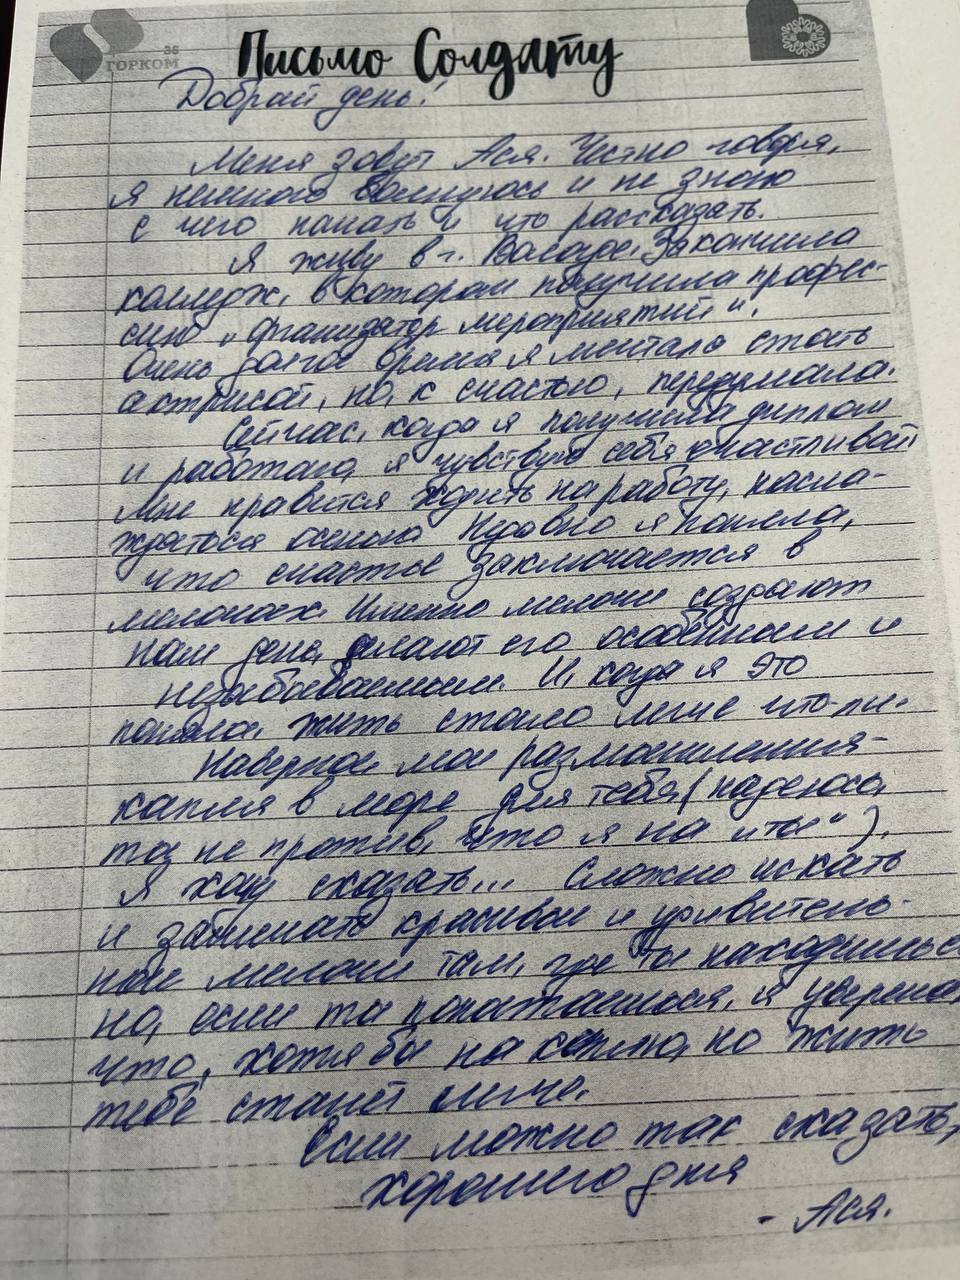 35
ГОРКОМ
Письмо Солдату
Добрый день!
Меня зовут Ася. Честно говоря,
я немного волнуюсь и не знаю
с чего начать и что рассказать.
Я живу в г. Вологде. Закончила
колледж, в котором получила профес-
сию „организатор мероприятий".
Очень долгое время я мечтала стать
актрисой, но, к счастью, передумала.
Сейчас, когда я получила диплом
и работаю, я чувствую себя счастливой
Мне нравится ходить на работу, насла-
ждаться осенью Недавно я поняла,
что счастье заключается в
мелочах. Именно мелочи создают
наш день, делают его особенным и
незабываемым. И, когда я это
поняла, жить стало легче что-ли.
Наверное мои размышления-
капля в море для тебя (надеюсь,
ты не против, что я на „ты").
Я хочу сказать... Сложно искать
и замечать красивые и удивитель-
ные мелочи там, где ты находишься
но, если ты попытаешься, я уверена,
что, хотя бы на капельку, но жить
тебе станет легче.
Если можно так сказать,
хорошего дня
- Ася.